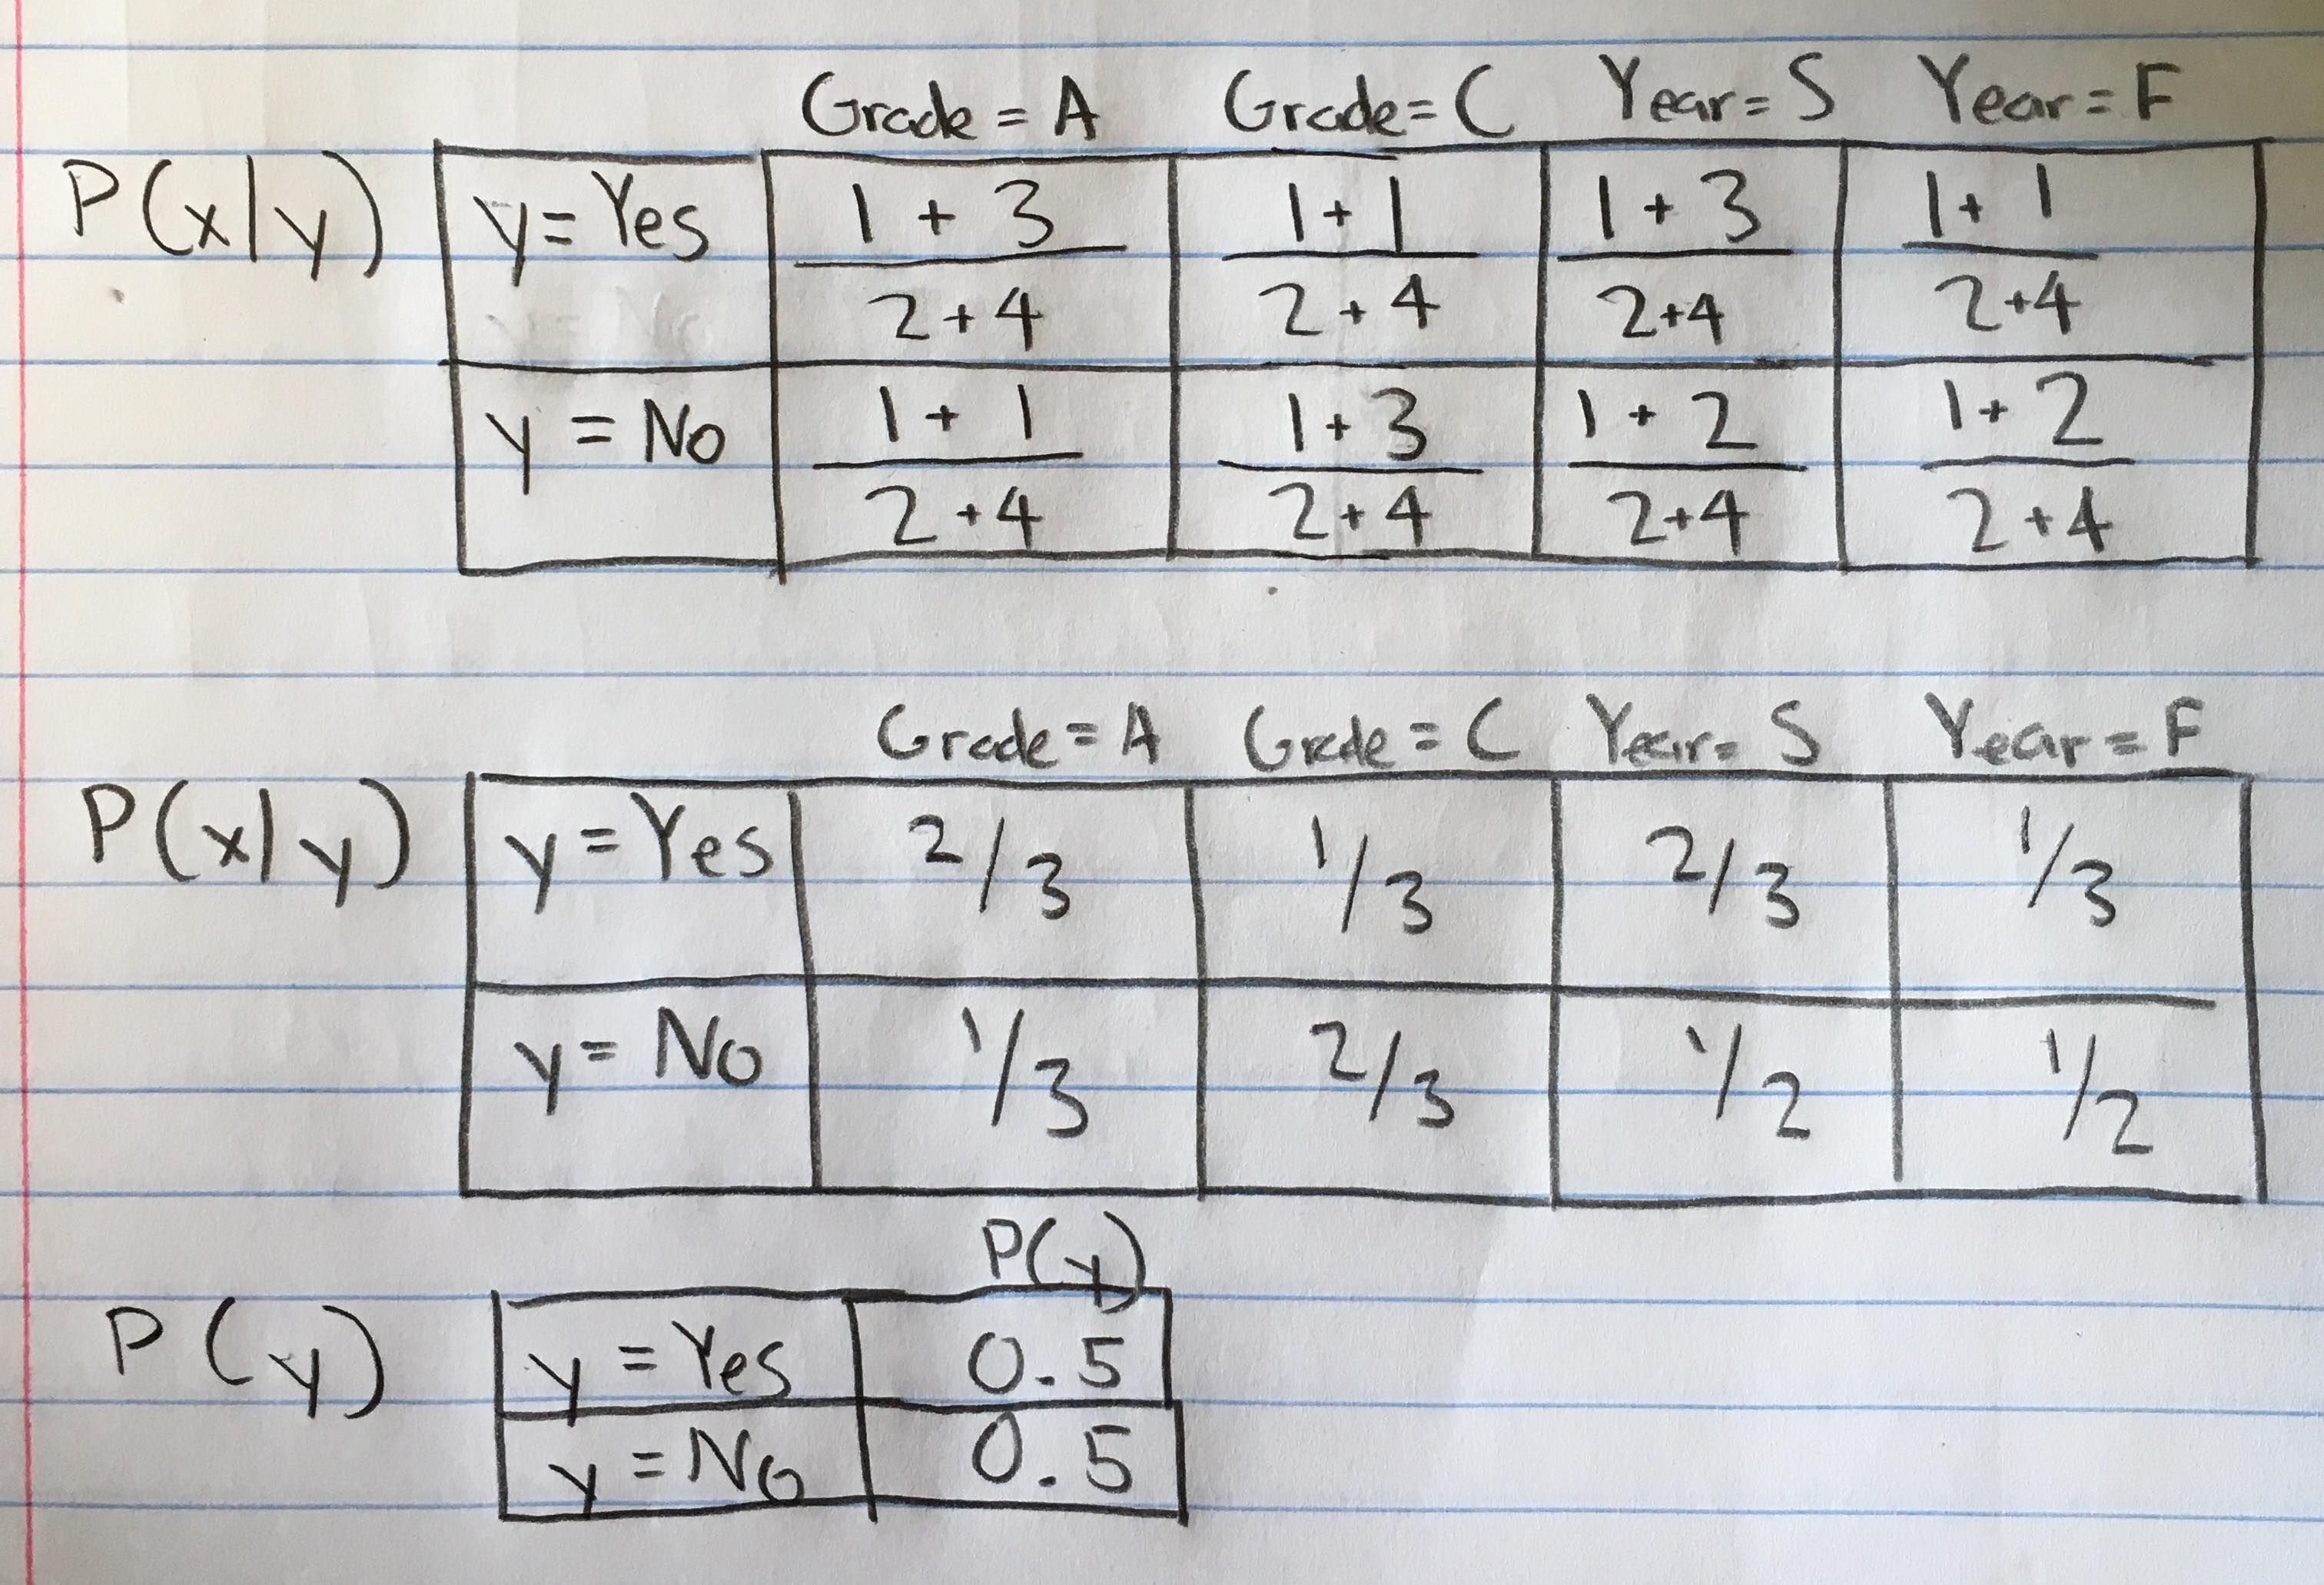 Grade = A Grade = C Year = S Year = F
P(x|y) y = Yes 1 + 3 / 2 + 4 1 + 1 / 2 + 4 1 + 3 / 2 + 4 1 + 1 / 2 + 4
y = No 1 + 1 / 2 + 4 1 + 3 / 2 + 4 1 + 2 / 2 + 4 1 + 2 / 2 + 4
Grade = A Grade = C Year = S Year = F
P(x|y) y = Yes 2/3 1/3 2/3 1/3
y = No 1/3 2/3 1/2 1/2
P(y)
P(y) y = Yes 0.5
y = No 0.5